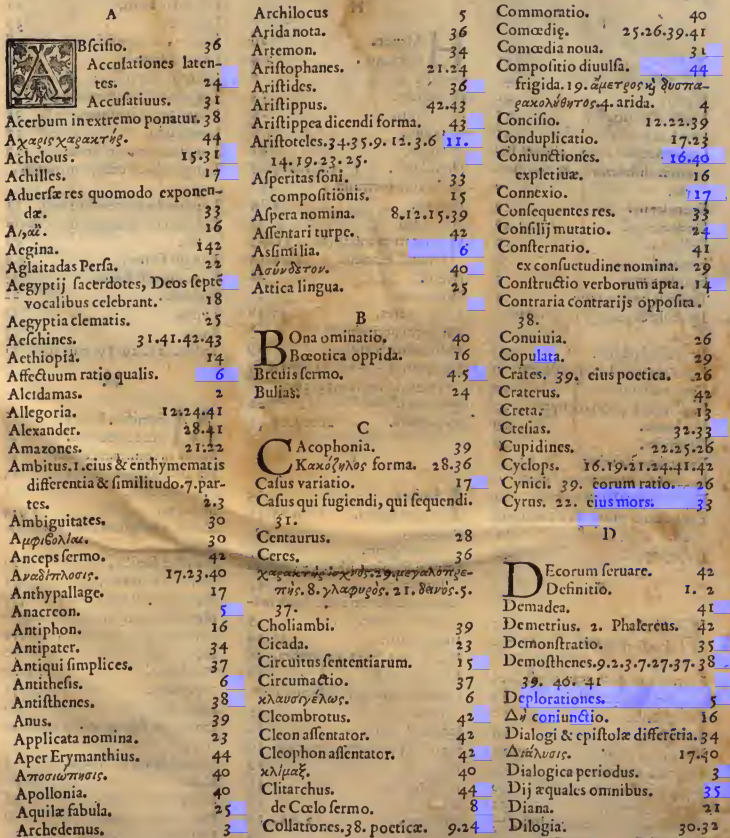 A
ABſciſio. 36
Accuſationes laten-
tes. 24
Accuſatiuus. 31
Acerbum in extremo ponatur. 38
Αχαρις χαρακτήρ. 44
Achelous. 15.31
Achilles. 17
Aduerſæ res quomodo exponen-
dæ. 33
16
Aegina. 142
Aglaitadas Perſa. 22
Aegyptij ſacerdotes, Deos ſeptē
vocalibus celebrant. 18
Aegyptia clematis. 25
Aeſchines. 31.41.42.43
Aethiopia. 14
Affectuum ratio qualis. 6
Alcidamas. 2
Allegoria. 12.24.41
Alexander. 28.41
Amazones. 21.22
Ambitus. 1. eius & enthymematis
differentia & ſimilitudo. 7. par-
tes. 2.3
Ambiguitates. 30
Αμφιβολίαι. 30
Anceps ſermo. 42
Αναδίπλοσις. 17.23.40
Anthypallage. 17
Anacreon. 5
Antiphon. 16
Antipater. 34
Antiqui ſimplices. 37
Antitheſis. 6
Antiſthenes. 38
Anus. 39
Applicata nomina. 23
Aper Erymanthius. 44
Αποσιώπησις. 40
Apollonia. 40
Aquilæ fabula. 25
Archedemus. 3
Archilocus 5
Arida nota. 36
Artemon. 34
Ariſtophanes. 21.24
Ariſtides. 36
Ariſtippus. 42.43
Ariſtippea dicendi forma. 43
Ariſtoteles. 34.35.9.12.3.6 11.
14.19.23.25.
Aſperitas ſoni. 33
compoſitionis. 15
Aſpera nomina. 8.12.15.39
Aſſentari turpe. 42
Aſſimilia. 6
Ασύνδετον. 40
Attica lingua. 25
B
BOna ominatio. 40
Bœotica oppida. 16
Breuis ſermo. 4.5
Bulias. 24
C
CAcophonia. 39
Κακόζηλος forma. 28.36
Caſus variatio. 17
Caſus qui fugiendi, qui ſequendi.
31.
Centaurus. 28
Ceres. 36
χαρακτὴρ ἰσχνός. 29. μεγαλοπρε-
πής. 8. γλαφυρός. 21. δεινός. 5.
37.
Choliambi. 39
Cicada. 23
Circuitus ſententiarum. 15
Circumactio. 37
κλαυσιγέλως. 6
Cleombrotus. 42
Cleon aſſentator. 42
Cleophon aſſentator. 42
κλίμαξ. 40
Clitarchus. 44
de Cœlo ſermo. 8
Collationes. 38. poeticæ. 9.24
Commoratio. 40
Comœdię. 25.26.39.41
Comœdia noua. 31
Compoſitio diuulſa. 44
frigida. 19. ἄμετρος ϗ̀ δυσπα-
ρακολύθητος. 4. arida. 4
Conciſio. 12.22.39
Conduplicatio. 17.23
Coniunctiones. 16.40
expletiuæ. 16
Connexio. 17
Conſequentes res. 33
Conſilij mutatio. 24
Conſternatio. 41
ex conſuetudine nomina. 29
Conſtructio verborum apta. 14
Contraria contrarijs oppoſita.
38.
Conuiuia. 26
Copulata. 29
Crates. 39. eius poetica. 26
Craterus. 42
Creta. 13
Cteſias. 32.33
Cupidines. 22.25.26
Cyclops. 16.19.21.24.41.42
Cynici. 39. eorum ratio. 26
Cyrus. 22. eius mors. 33
D
DEcorum ſeruare. 42
Definitio. 1. 2
Demadea. 41
Demetrius. 2. Phalereus. 42
Demonſtratio. 35
Demoſthenes. 9.2.3.7.27.37.38
39. 40. 41
Deplorationes. 5
Δὴ coniunctio. 16
Dialogi & epiſtolæ differētia. 34
Διάλυσις. 17.40
Dialogica periodus. 3
Dij æquales omnibus. 35
Diana. 21
Dilogia. 30.32